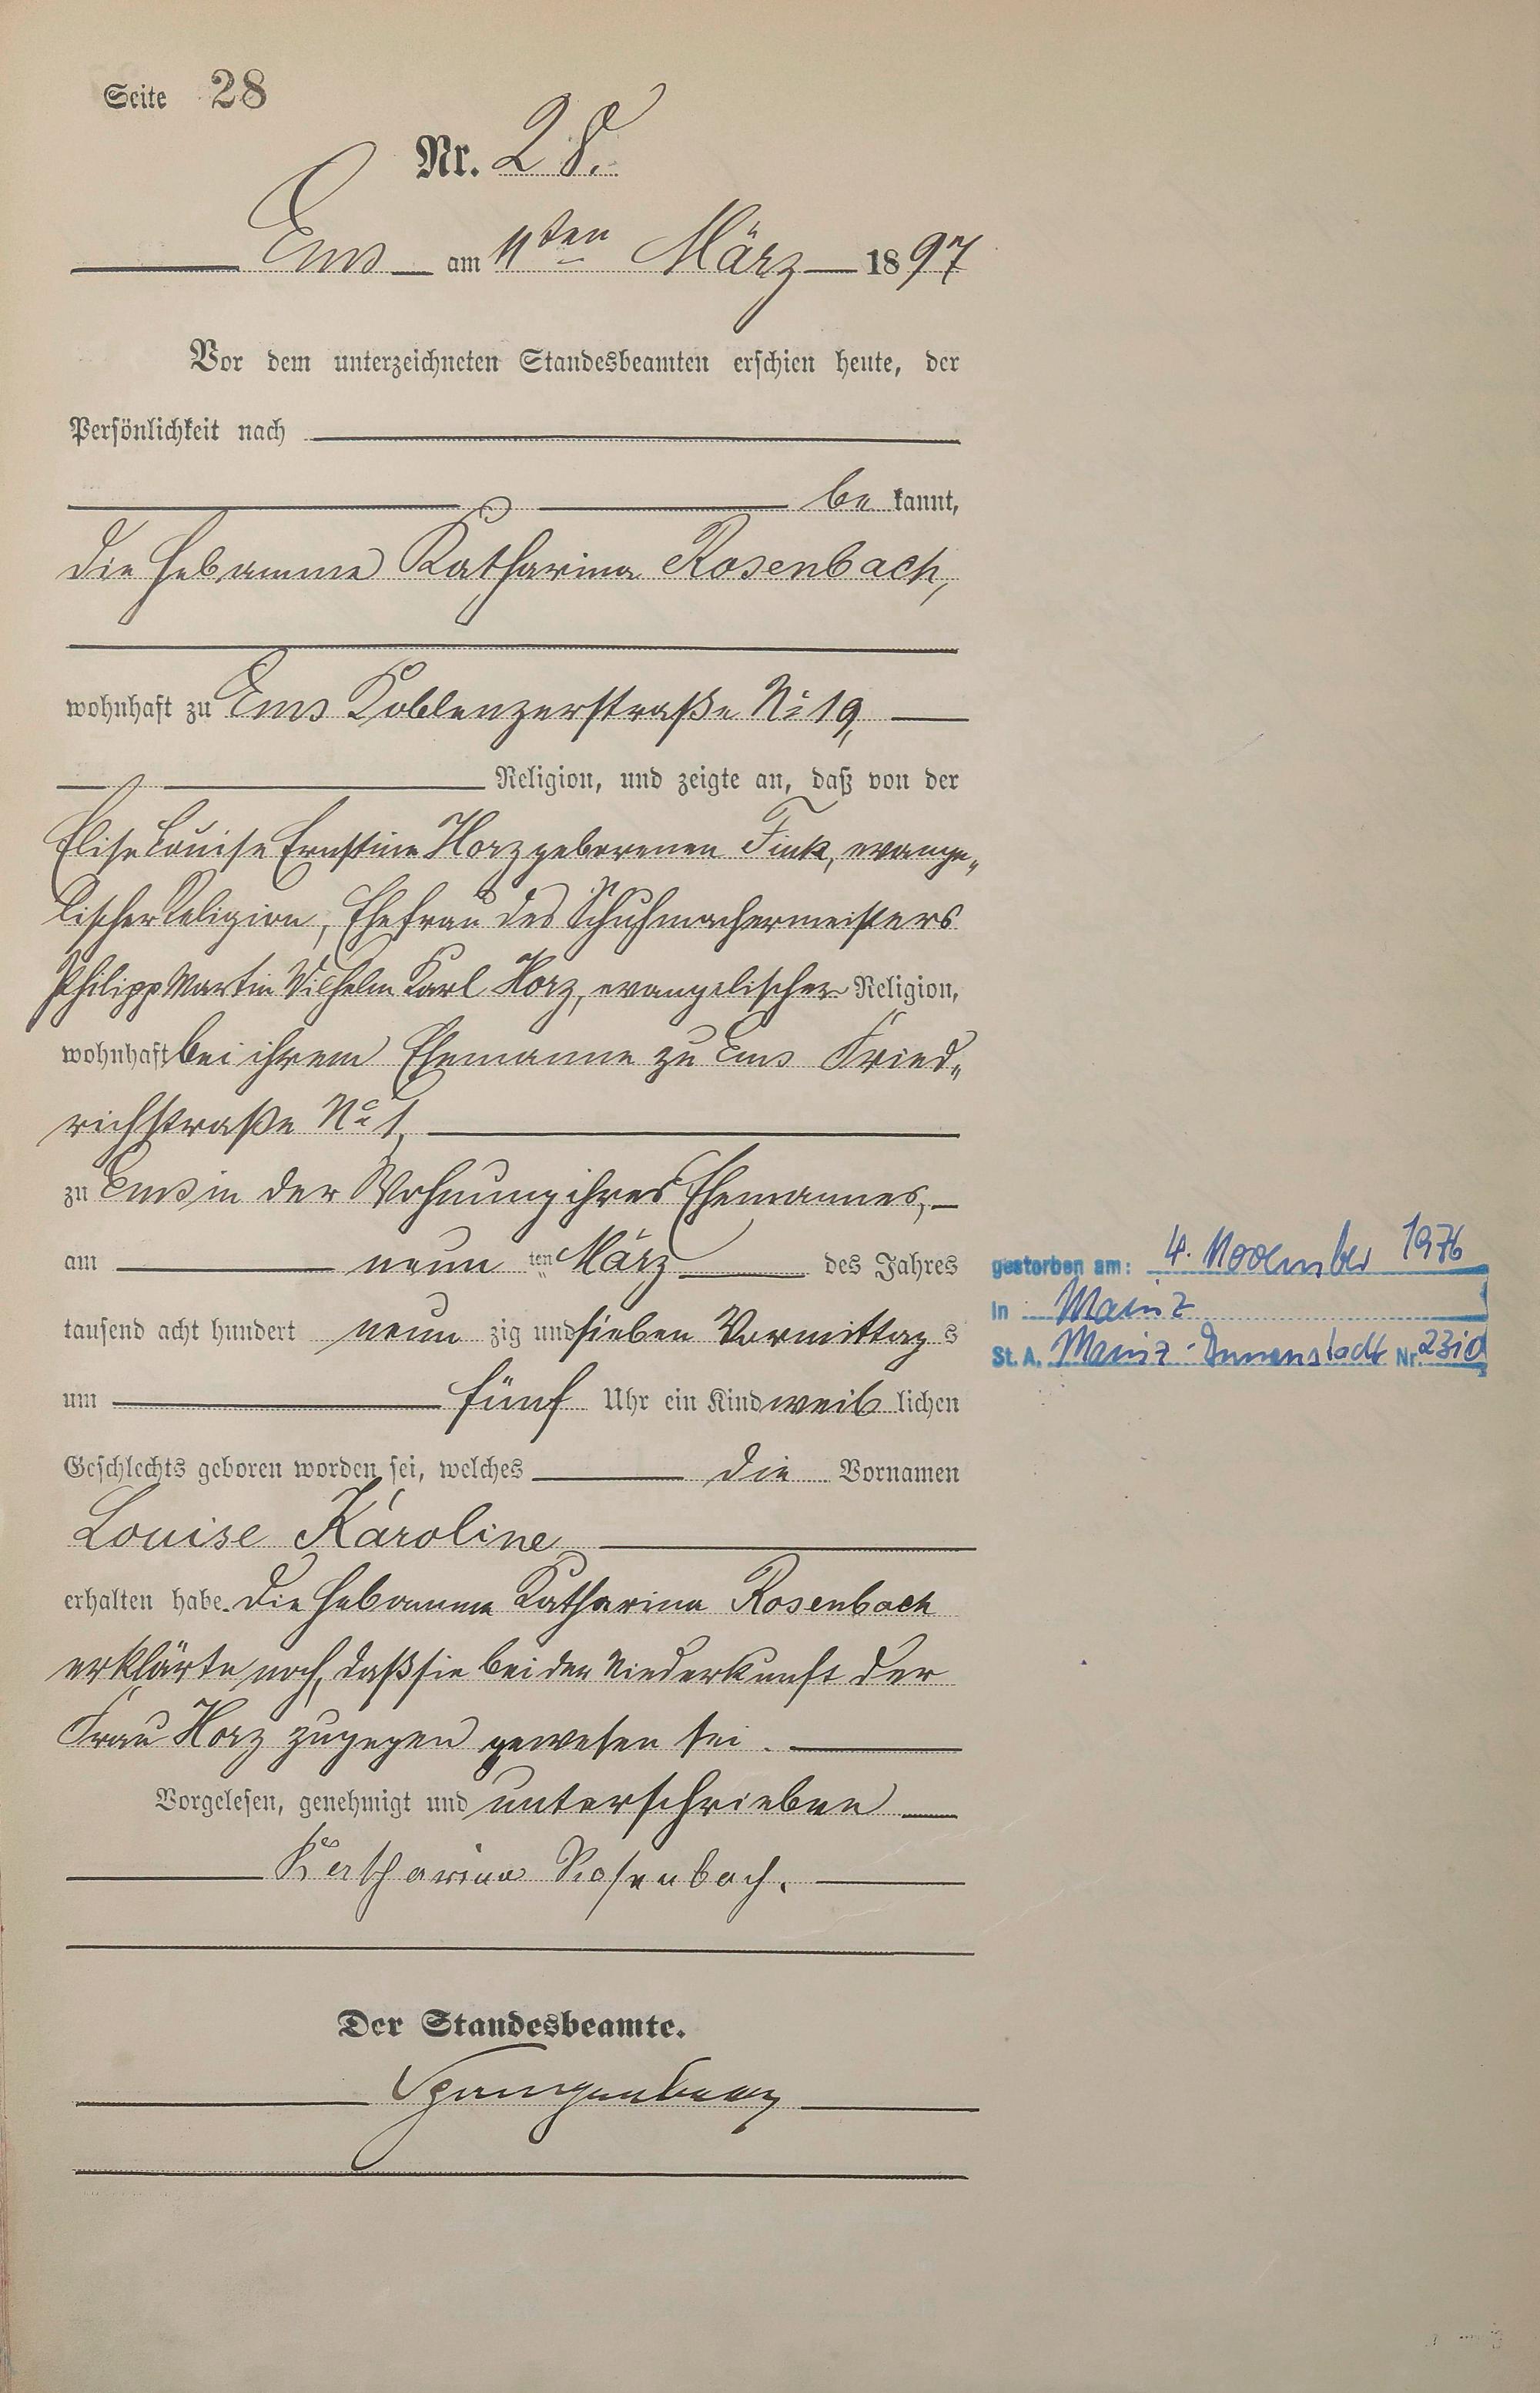 Seite 28
Nr. 28.
Ems am 11ten März 1897
Vor dem unterzeichneten Standesbeamten erschien heute, der
Persönlichkeit nach
be kannt,
die Hebamme Katharina Rosenbach,
wohnhaft zu Ems Koblenzerstraße No 19,
Religion, und zeigte an, daß von der
Elise Louise Ernstine Horz geborenen Fink, evange„
lischer Religion, Ehefrau des Schuhmachermeisters
Philipp Martin Wilhelm Karl Horz, evangelischer Religion,
wohnhaft bei ihrem Ehemanne zu Ems Fried„
richstraße No 1,
zu Ems in der Wohnung ihres Ehemannes,
am neun ten März des Jahres
tausend acht hundert neun zig und sieben Vormittag s
um fünf Uhr ein Kind weib lichen
Geschlechts geboren worden sei, welches die Vornamen
Louise Karoline
erhalten habe. Die Hebamme Katharina Rosenbach
erklärte noch, daß sie bei der Niederkunft der
Frau Horz zugegen gewesen sei.
Vorgelesen, genehmigt und unterschrieben
Katharina Rosenbach.
Der Standesbeamte.
Spangenberg
gestorben am: 4. November 1976
in Mainz
St. A. Mainz-Innenstadt Nr. 2310